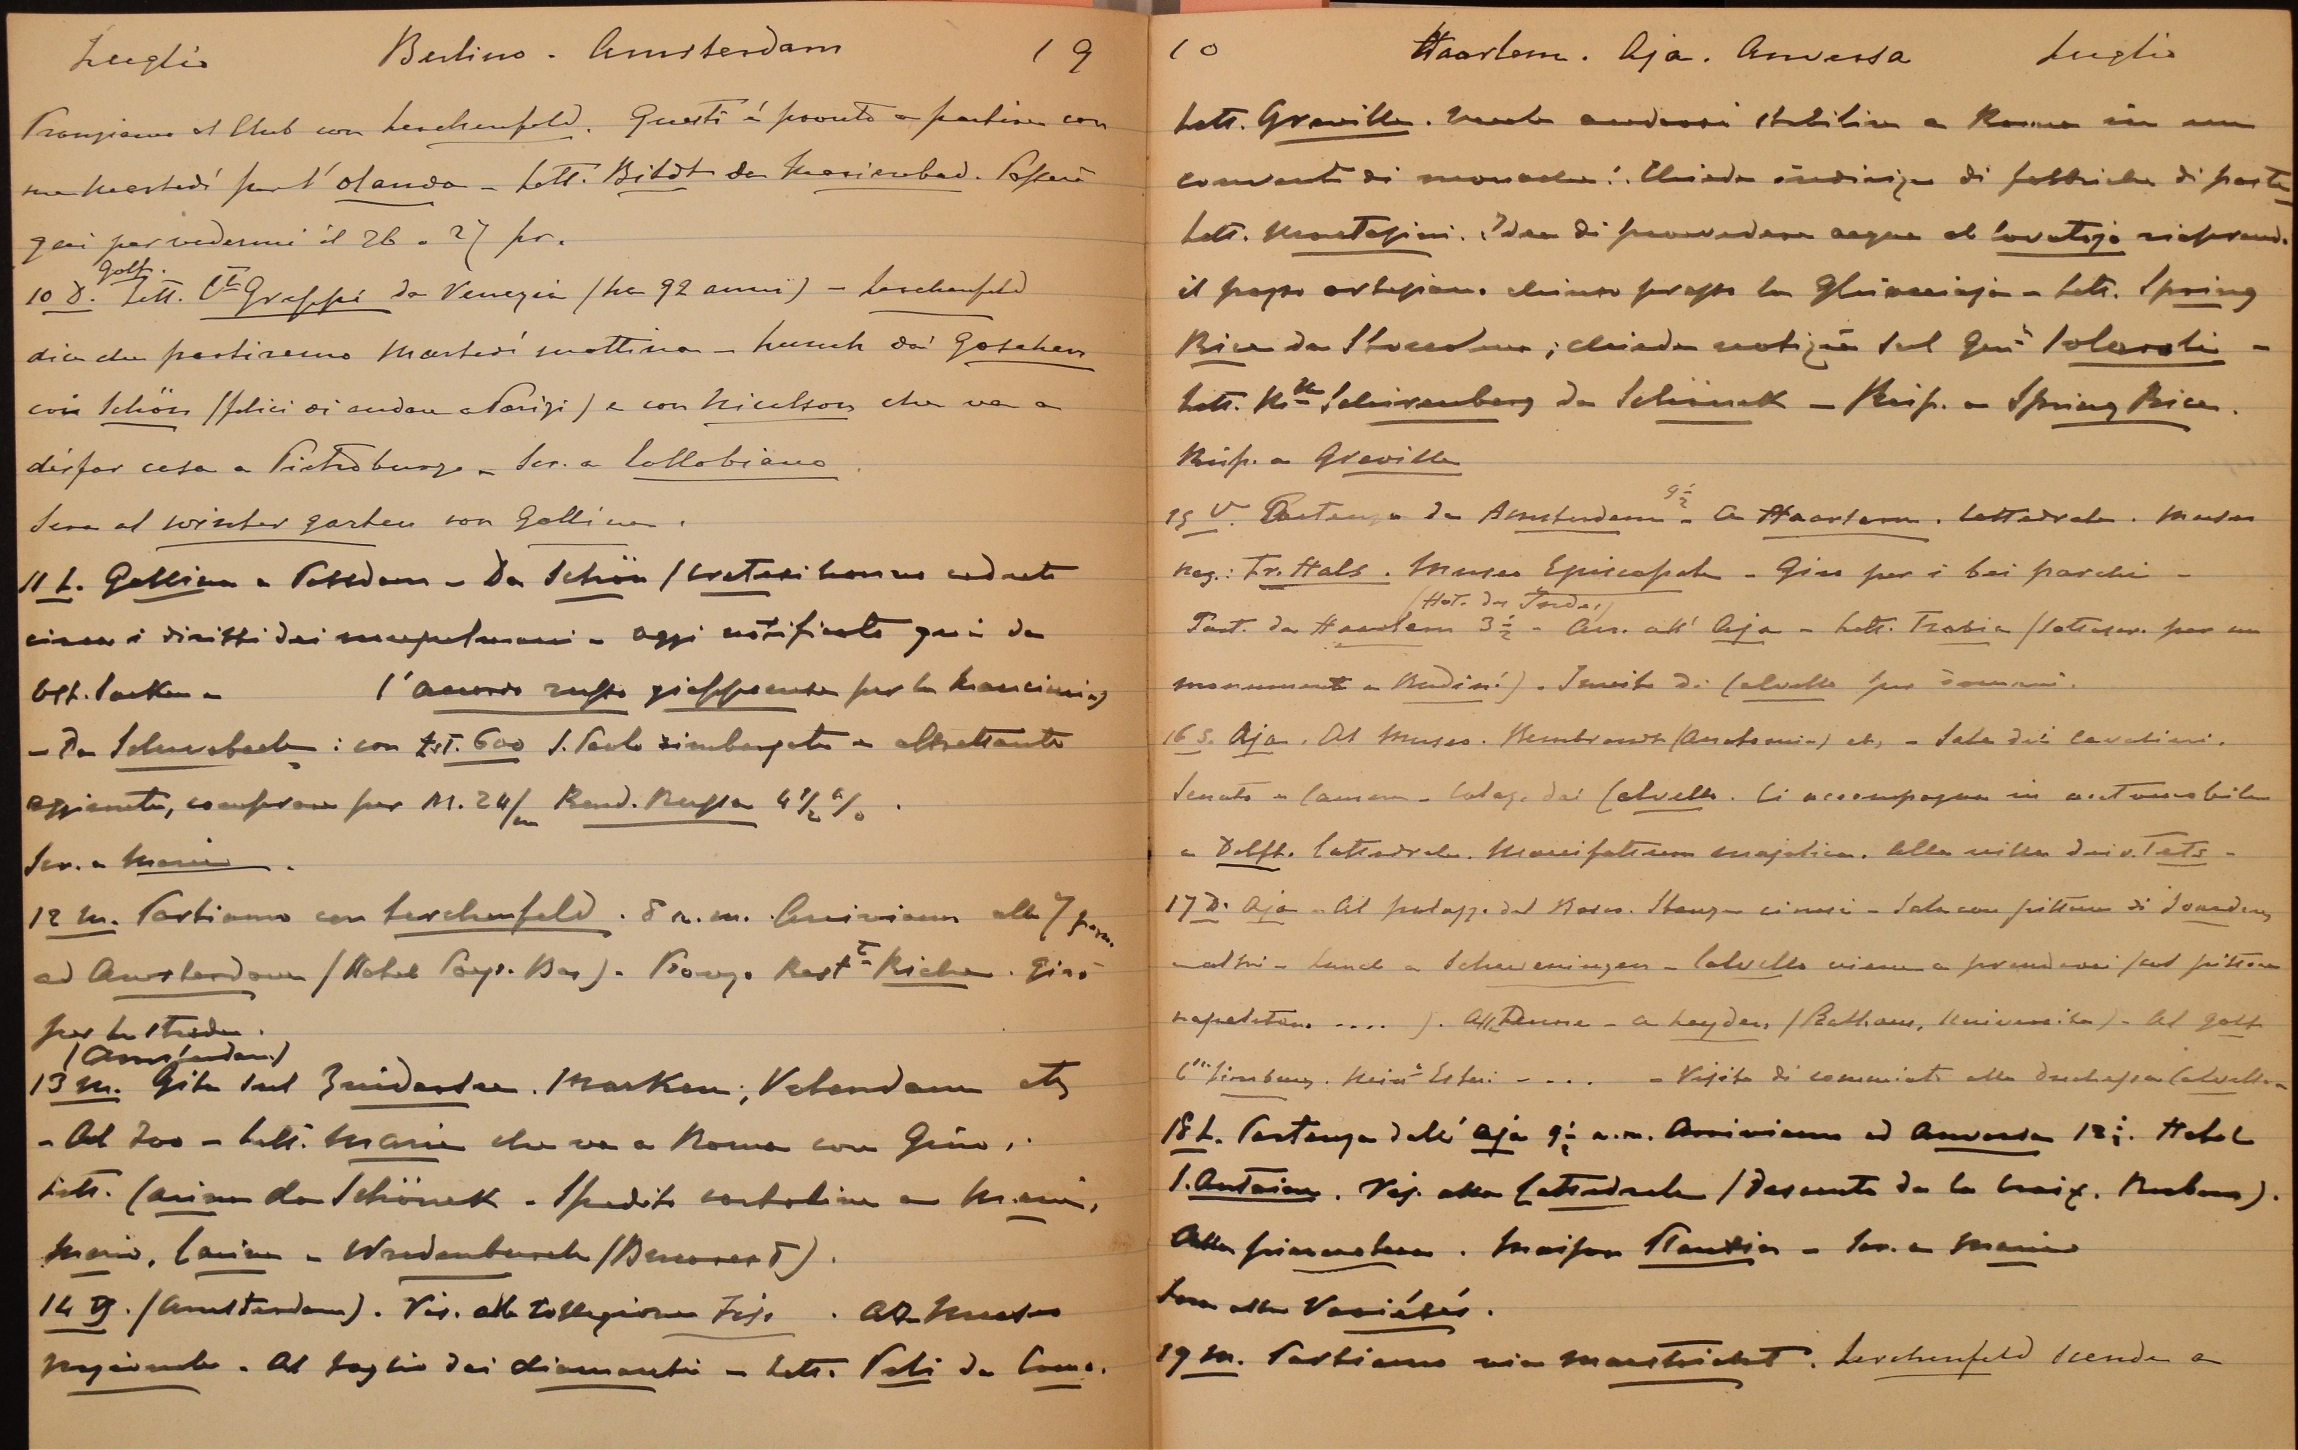 Luglio Berlino - Amsterdam 19
Pranziamo al Club con Lerchenfeld. Questi è pronto a partire con
me martedì per l'Olanda - Lett. Bildt da Marienbad. Passerà
qui per vedermi il 26 o 27 pr.
Golf.
10 D. Lett. Cte Greppi da Venezia (ha 92 anni) - Lerchenfeld
dice che partiremo martedì mattina - Lunch dai Goschen
con Schön (felici di andare a Parigi) e con Nicolson che va a
disfar casa a Pietroburgo - Scr. a Collobiano.
Sera al Winter garten con Gallina.
11 L. Gallina a Potsdam - Da Schön (cretesi hanno ceduto
circa i diritti dei musulmani - oggi notificato qui da
Ost. Sacken - l'accordo russo giapponese per la Manciuria)
- Da Schwabach: con Lst. 600 S. Paolo rimborsate e altrettante
aggiunte, comprare per M. 24/m Rend. Russa 4 1/2 %.
Scr. a Maria.
12 M. Partiamo con Lerchenfeld. 8 a.m. Arriviamo alle 7 pom.
ad Amsterdam (Hotel Pays-Bas). Pranzo Restt Riche. Giro
per le strade.
(Amsterdam)
13 M. Gita sul Zuidersee. Marken, Volendam etc
- Al Zoo - Lett. Maria che va a Roma con Gino.
Lett. Carina da Schöneck - Spedito cartoline a
Maria, Carina e Wredenburch (Bucarest).
14 G. (Amsterdam). Vis. alla collezione Six. Al Museo
nazionale. Al taglio dei diamanti - Lett. da Como.
10 Haarlem. Aja. Anversa Luglio
Lett. Greville. Vuole andarsi stabilire a Roma in un
convento di monache! Chiede indirizzo di fabbriche di paste
Lett. Montagini. Idea di provvedere acqua al lavatojo riaprendo
il pozzo artesiano chiuso presso la ghiacciaja - Lett. Spring
Rice da Stoccolma; chiede notizie sul Genle Solaroli -
Lett. Mme da Schöneck - Risp. a Spring Rice.
Risp. a Greville
15 V. Partenza da Amsterdam 9 1/2 - A Haarlem. Cattedrale. Museo
naz.: Fr. Hals. Museo Episcopale - Giro per i bei parchi -
(Hot. des Indes)
Part. da Haarlem 3 1/2 - Arr. all'Aja - Lett. Trabia (sottoscr. per un
monumento a Rudinì). Invito di Calvello per domani.
16 S. Aja. Al Museo. Rembrandt (Anatomia) etc. - Sala dei Cavalieri.
Senato e Camera - Colaz. dai Calvello. Ci accompagna in automobile
a Delft. Cattedrale. Manifattura majolica. Alla villa dei v. Tets -
17 D. Aja - Al palazzo del Bosco. Stanze cinesi - Sala con pitture di Jordaens
e altri - Lunch a Scheveningen - Calvello viene a prenderci (sul pittore
napoletano ....). Alle Dune - a Leyden (Rathaus, Università) - Al golf
.... - Visita di commiato alla duchessa Calvello -
18 L. Partenza dall'Aja 9 1/2 a.m. Arriviamo ad Anversa 12 1/2. Hotel
S. Antoine. Vis. alla Cattedrale (Descente de la Croix. Rubens).
Alla pinacoteca. Maison Plantin - Scr. a Maria
Sera alle Variétés.
19 M. Partiamo via Maastricht. Lerchenfeld scende a